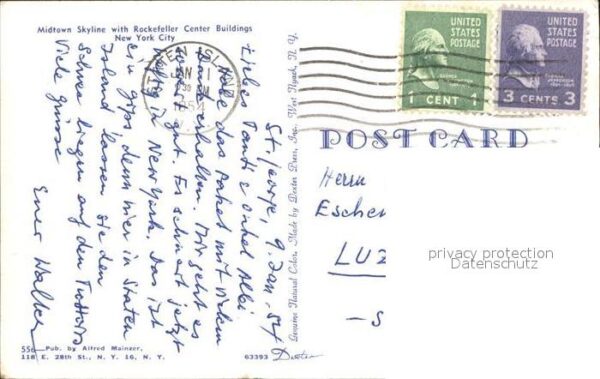 Midtown Skyline with Rockefeller Center Buildings
New York City
St. George, 9. Jan. 54
Liebes Tanti & Onkel Albi
Habe das Paket mit
erhalten. Mir geht es
sehr gut. Es schneit jetzt
in New York. Das ist
ein gips denn hier in Staten
Island lassen sie den
Schnee liegen auf den Trottoirs
Viele Grüsse
Euer Walter
55 Pub. by Alfred Mainzer,
118 E. 28th St., N. Y. 16, N. Y.
63393 Dexter
Genuine Natural Color, Made by Dexter Press, Inc., West Nyack, N. Y.
STATEN ISLAND
JAN
PM
1954
UNITED
STATES
POSTAGE
1 CENT 1
UNITED STATES
POSTAGE
3 CENTS 3
POST CARD
Herrn
Escher
LUZ
privacy protection
Datenschutz